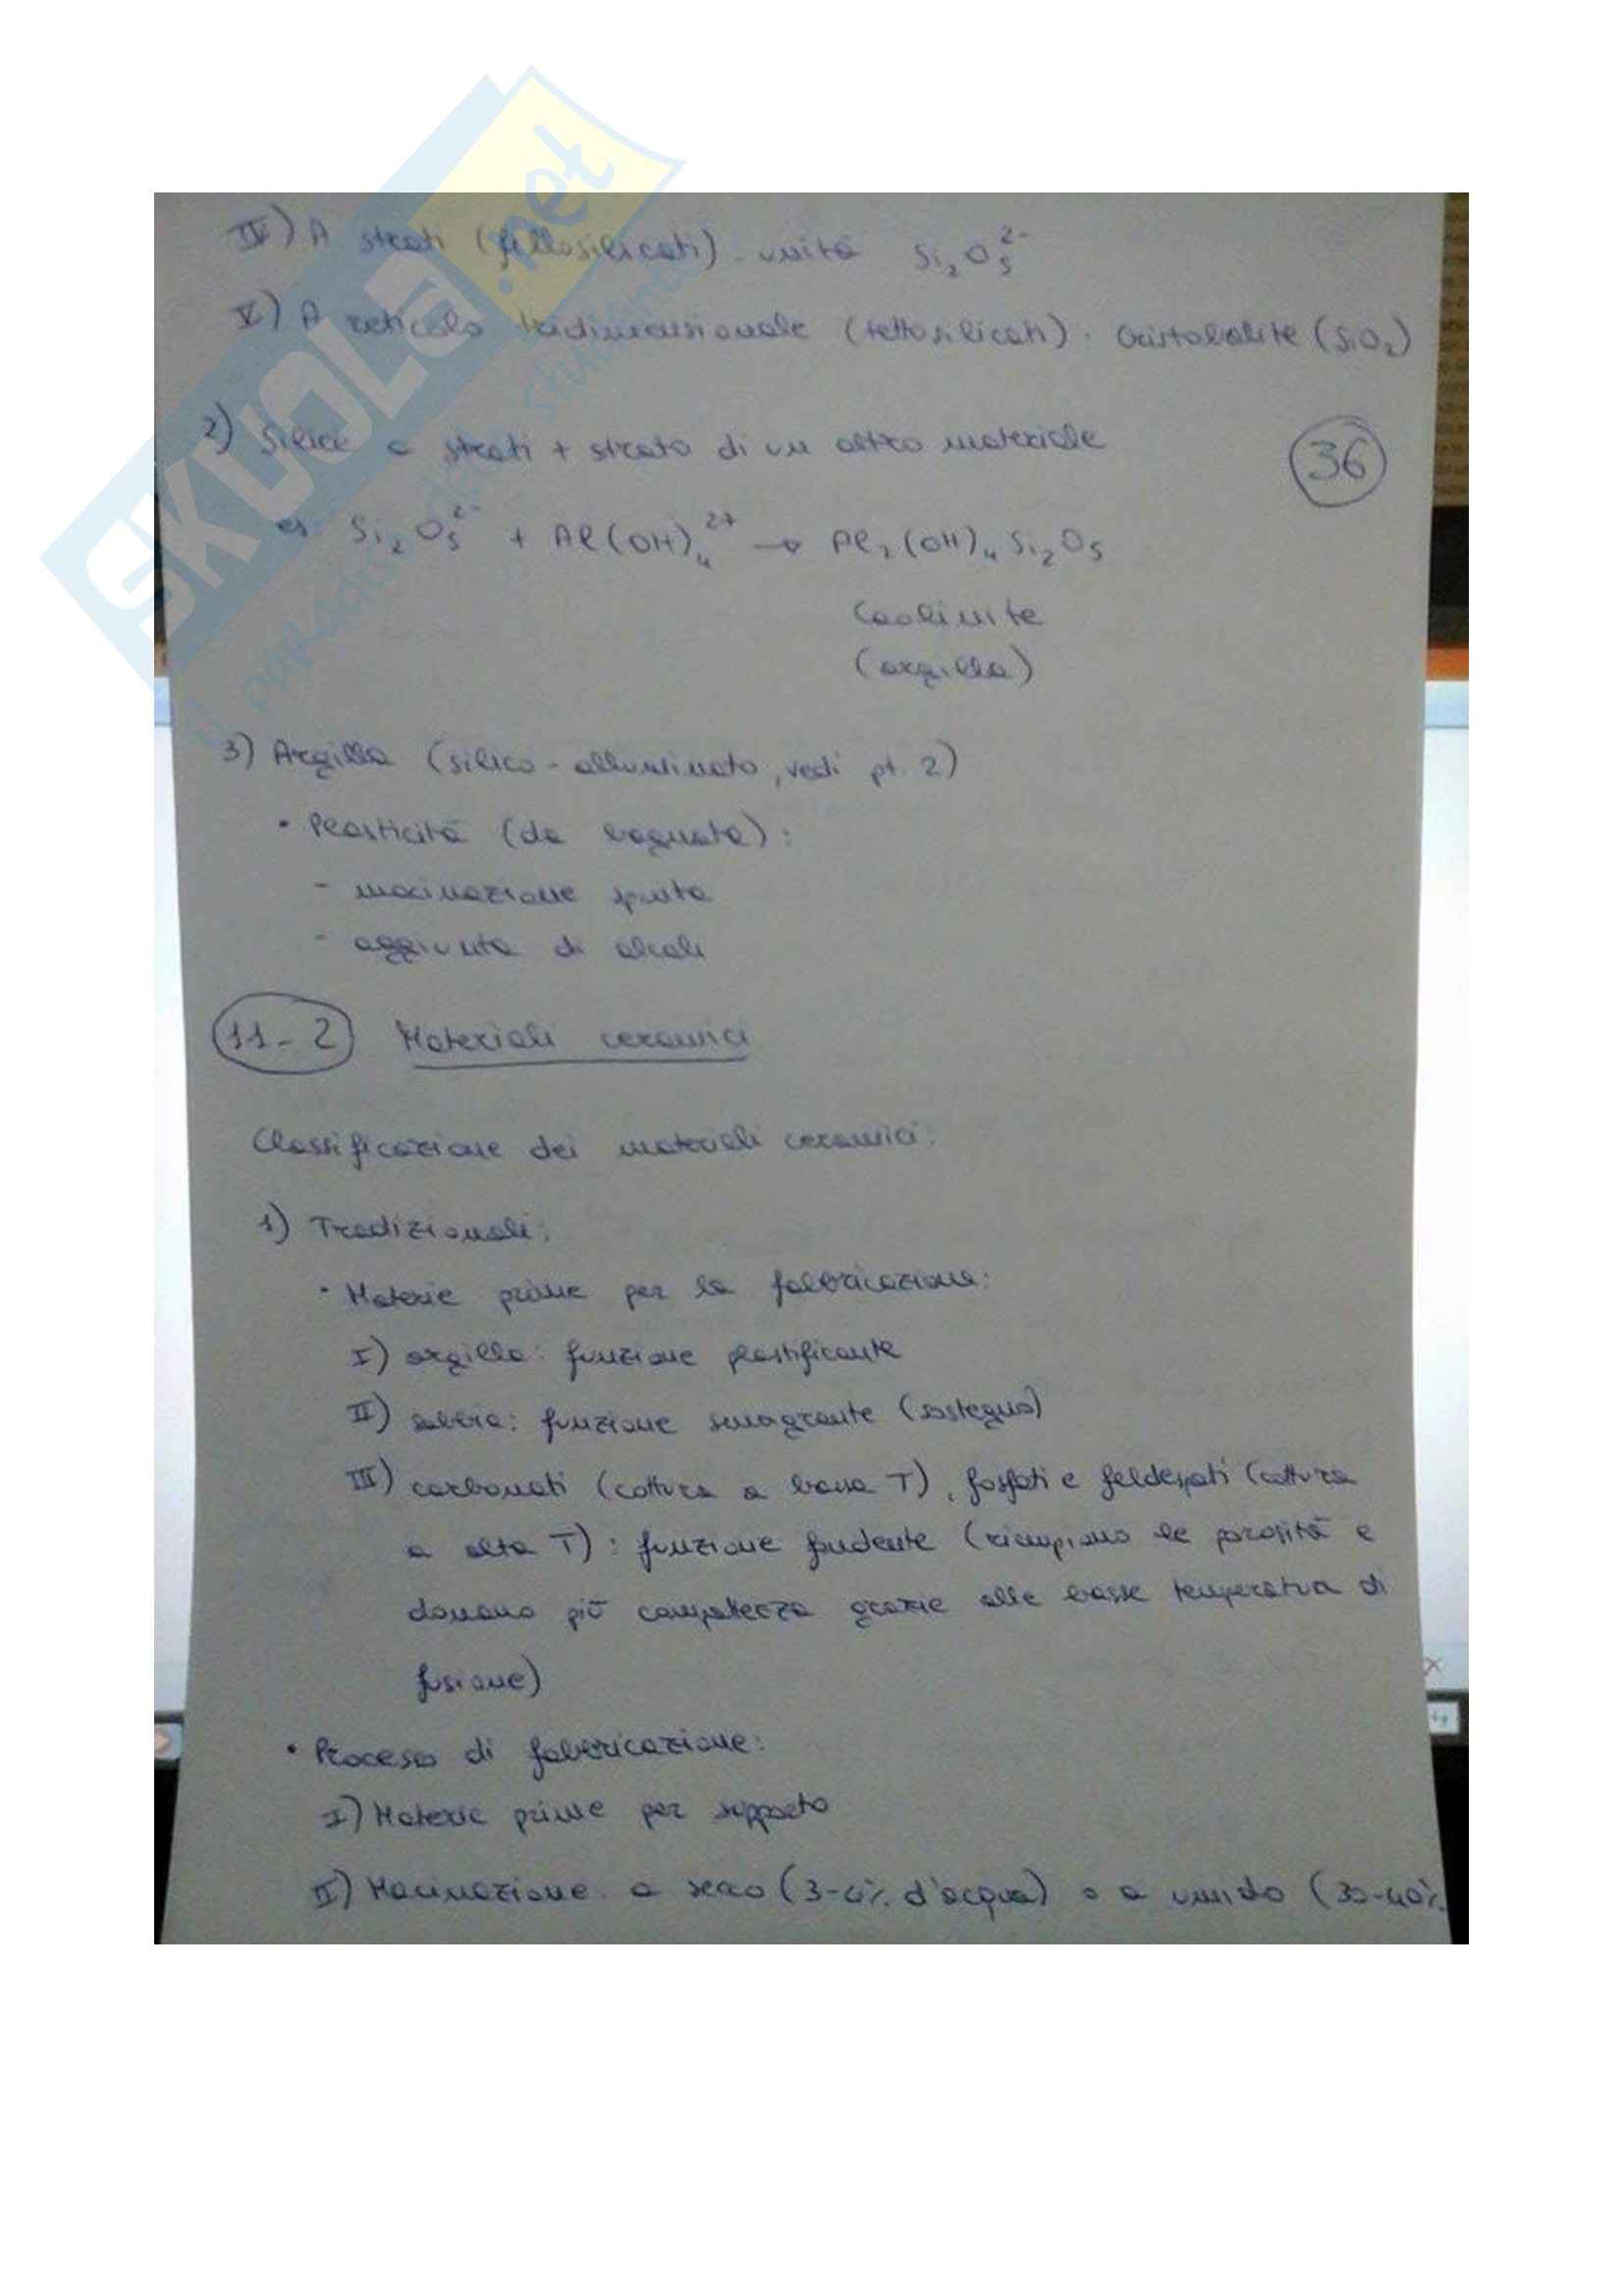 IV) A strati (fillosilicati): unità Si₂O₅²⁻
V) A reticolo tridimensionale (tettosilicati): Cristobalite (SiO₂)
2) Silice a strati + strato di un altro materiale
36
es. Si₂O₅²⁻ + Al(OH)₄²⁺ → Al₂(OH)₄Si₂O₅
Caolinite
(argilla)
3) Argilla (silico-alluminato, vedi pt. 2)
• Plasticità (da bagnata):
- macinazione spinta
- aggiunta di alcali
11-2 Materiali ceramici
Classificazione dei materiali ceramici:
1) Tradizionali:
• Materie prime per la fabbricazione:
I) argilla: funzione plastificante
II) sabbia: funzione smagrante (sostegno)
III) carbonati (cottura a bassa T), fosfati e feldspati (cottura
a alta T): funzione fondente (riempiono le porosità e
donano più compattezza grazie alle basse temperatura di
fusione)
• Processo di fabbricazione:
I) Materie prime per supporto
II) Macinazione a secco (3-4% d'acqua) o a umido (30-40%
SKUOLA.net
il paradiso dello studente